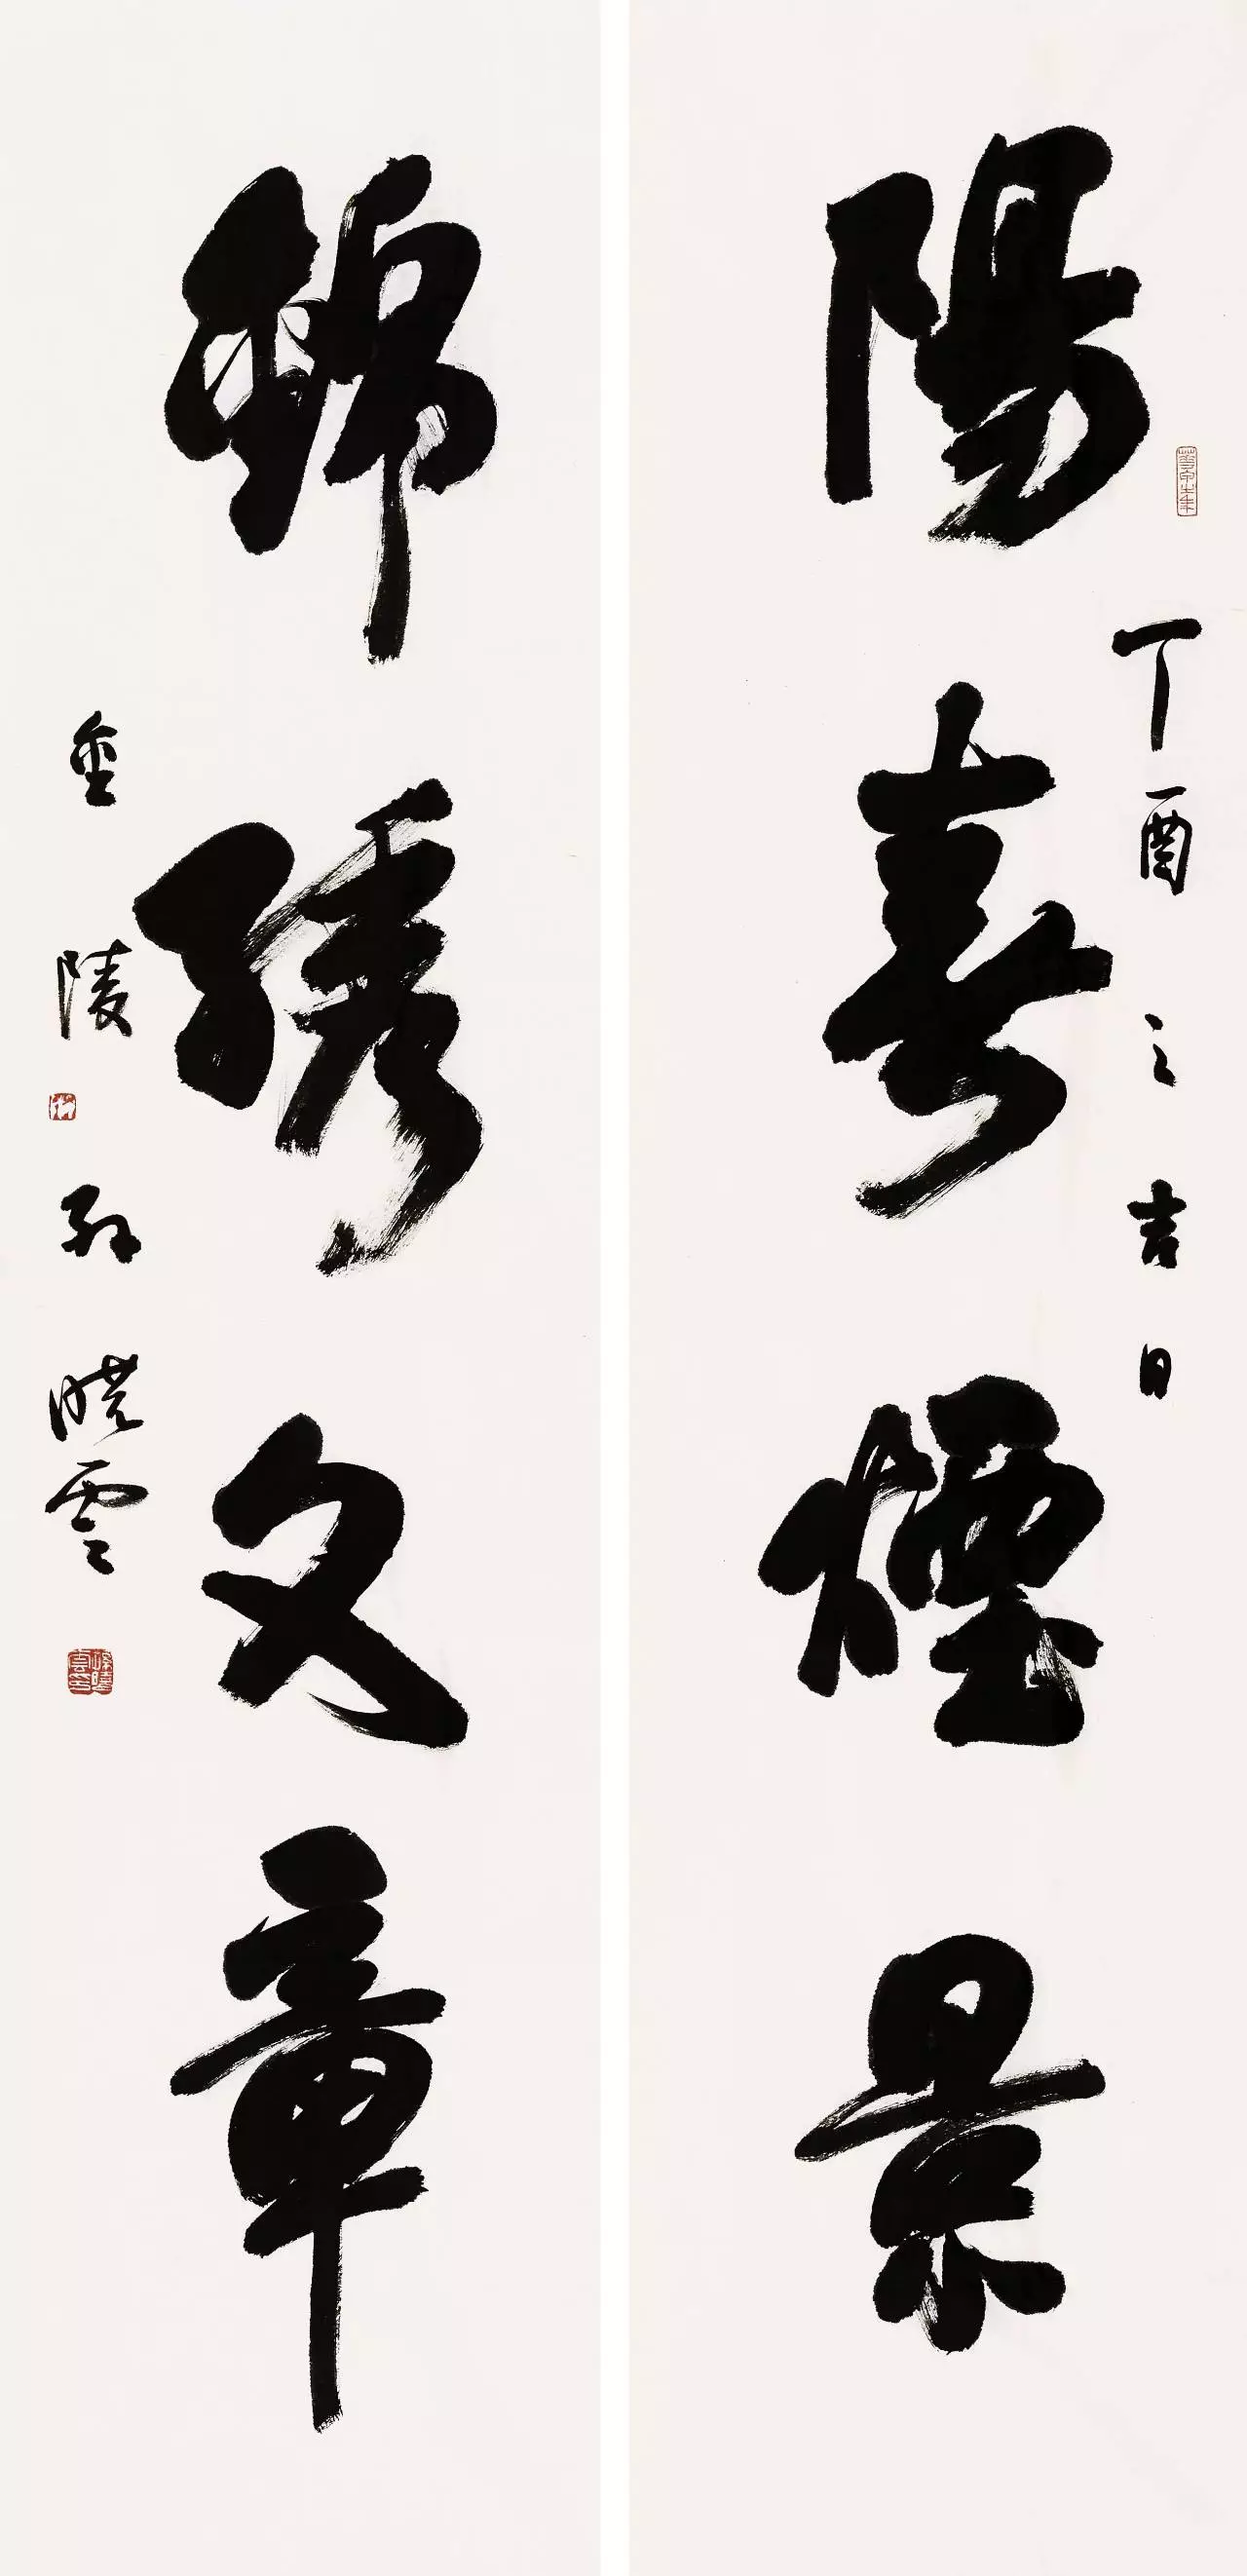 陽春煙景
丁酉之吉日
錦繡文章
金陵孫曉雲